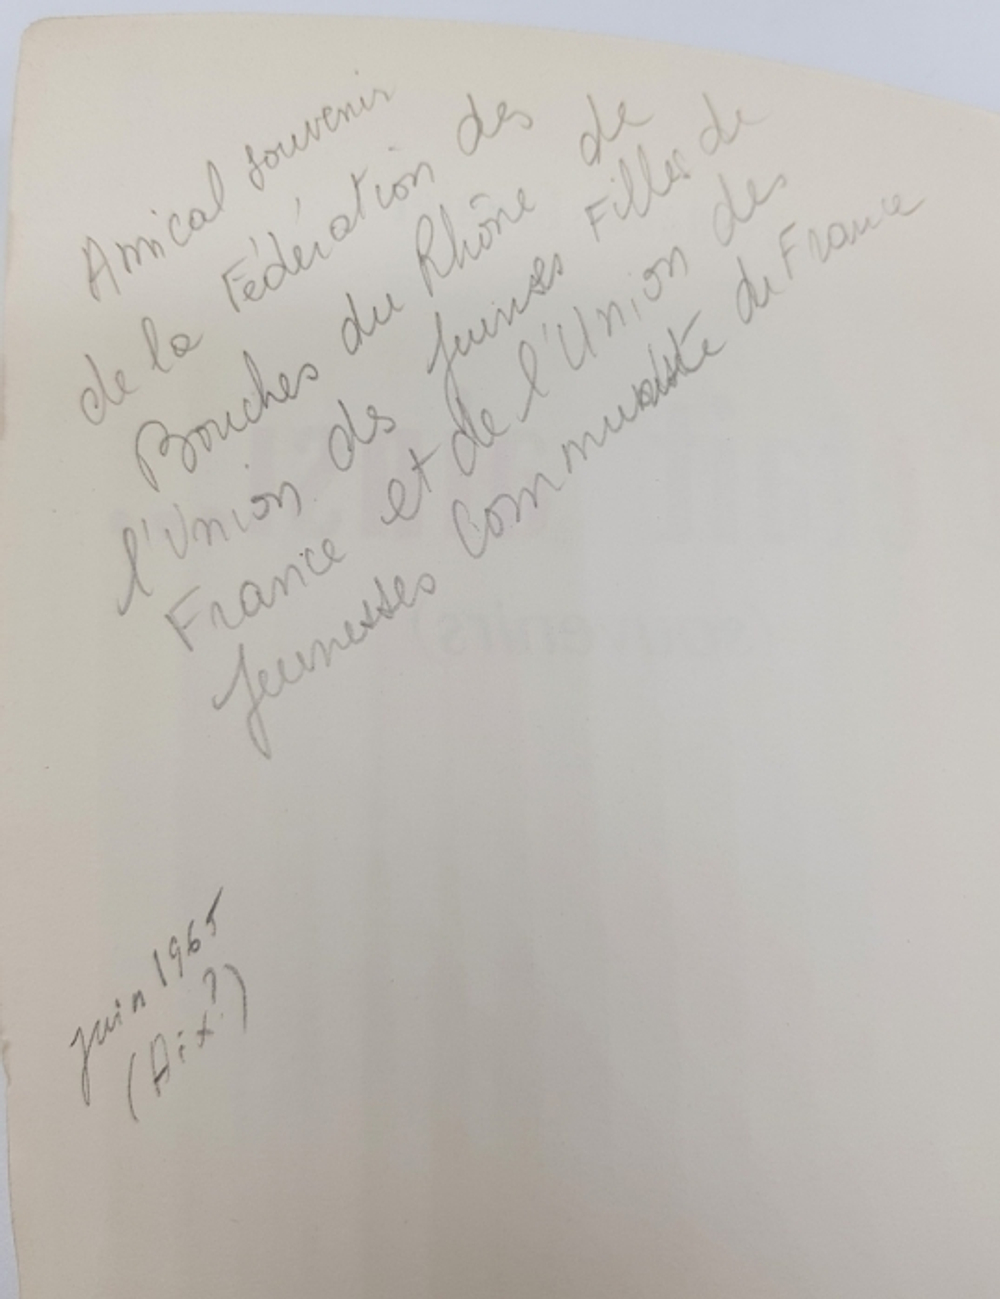 Amical souvenir
de la Fédération des
Bouches du Rhône de
l'Union des Jeunes Filles de
France et de l'Union des
Jeunesses Communiste de France
juin 1965
(Aix?)